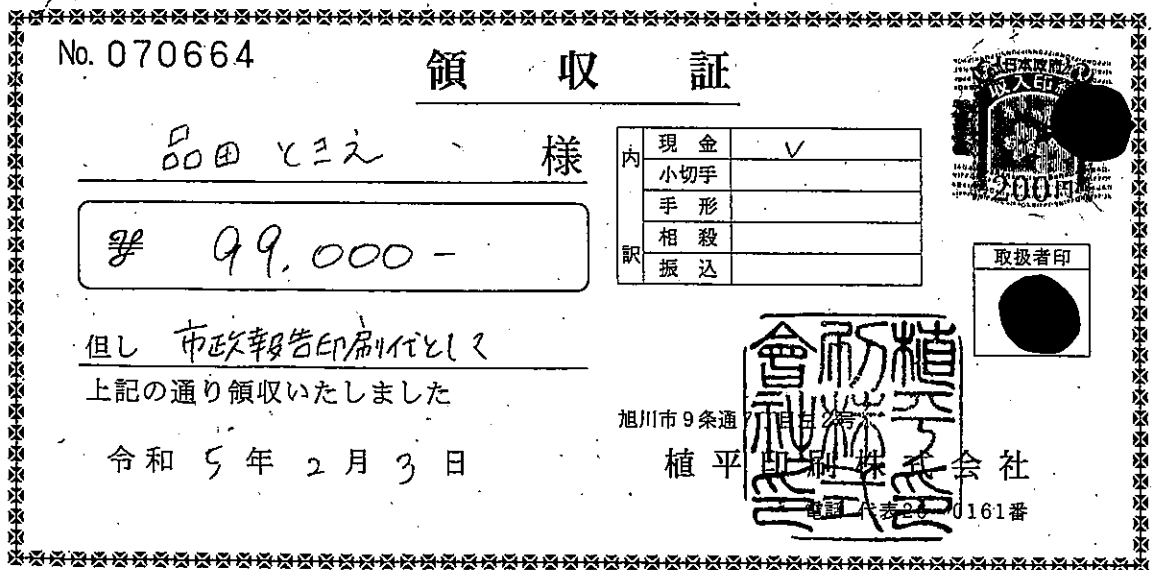 No. 070664
領収証
品田ときえ 様
内訳
現金 V
小切手
手形
相殺
振込
日本政府
収入印
200円
¥ 99,000-
取扱者印
但し 市政報告印刷代として
上記の通り領収いたしました
令和5年2月3日
旭川市9条通7丁目
植平印刷株式会社
電話 代表26-0161番